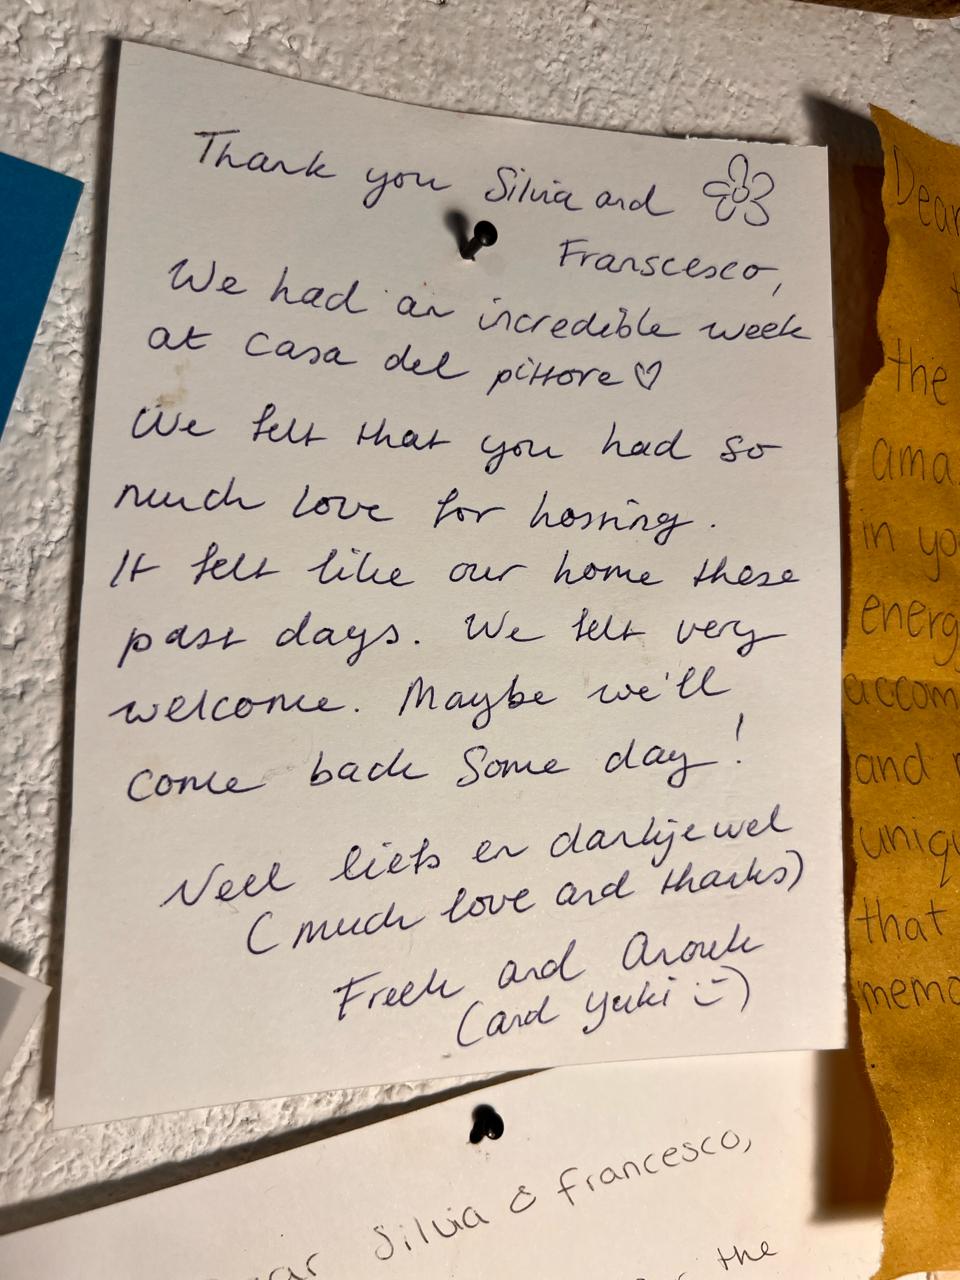 Thank you Silvia and
Franscesco,
We had an incredible week
at Casa del pittore ♡
We felt that you had so
much love for hosting.
It felt like our home these
past days. We felt very
welcome. Maybe we'll
come back some day!
Veel liefs en dankjewel
(much love and thanks)
Freek and Anouk
(and Yuki :))
Dear
the
ama
in yo
energ
accom
and
uniqu
that
memo
ear Silvia & Francesco,
the